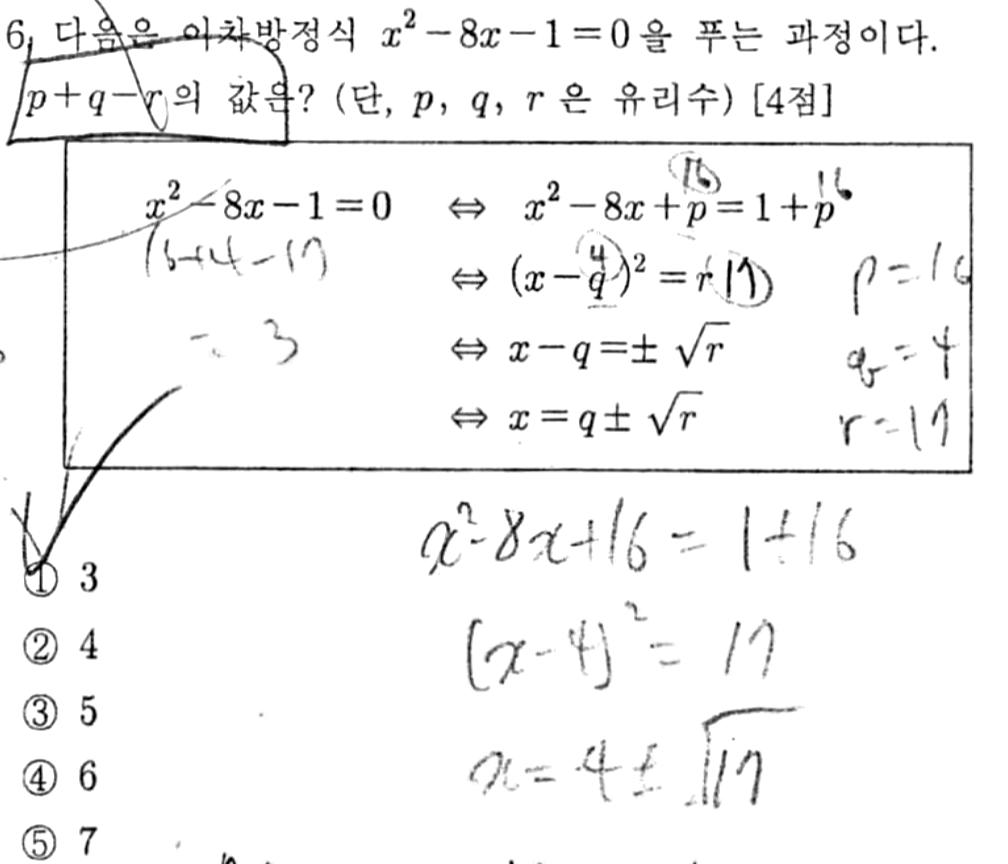 6. 다음은 이차방정식 x² − 8x − 1 = 0 을 푸는 과정이다.
p + q − r 의 값은? (단, p, q, r 은 유리수) [4점]
16 16
x² − 8x − 1 = 0 ⇔ x² − 8x + p = 1 + p
16+4−17 ⇔ (x − q)² = r 17 p = 16
4
= 3 ⇔ x − q = ± √r q = 4
⇔ x = q ± √r r = 17
x² - 8x + 16 = 1 + 16
① 3
(x − 4)² = 17
② 4
③ 5
x = 4 ± √17
④ 6
⑤ 7